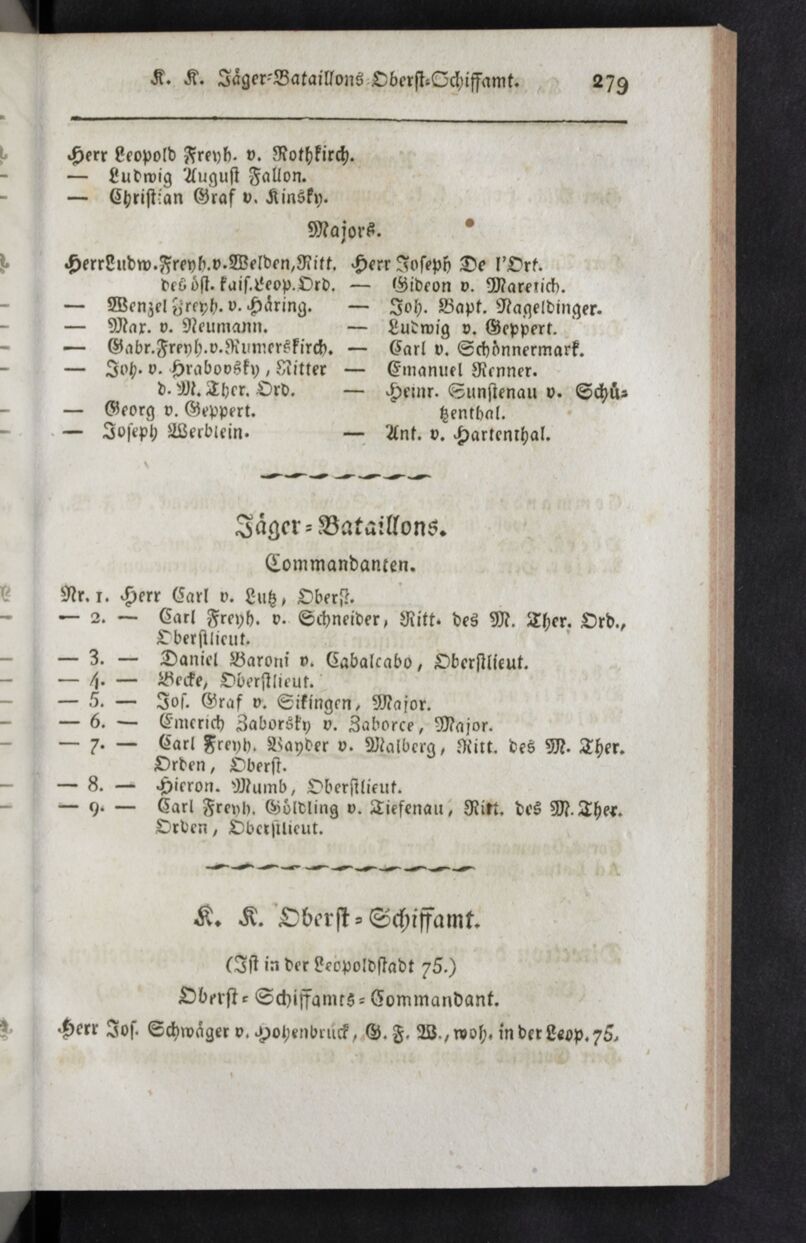 K. K. Jäger-Bataillons Oberst-Schiffamt. 279
Herr Leopold Freyh. v. Rothkirch.
— Ludwig August Fallon.
— Christian Graf v. Kinsky.
Majors.
Herr Ludw. Freyh. v. Welden, Ritt.
des öst. kais. Leop. Ord.
— Wenzel Freyh. v. Häring.
— Max. v. Neumann.
— Gabr. Freyh. v. Rumerskirch.
— Joh. v. Hrabovsky, Ritter
d. M. Ther. Ord.
— Georg v. Geppert.
— Joseph Werblein.
Herr Joseph De l'Ort.
— Gideon v. Maretich.
— Joh. Bapt. Nageldinger.
— Ludwig v. Geppert.
— Carl v. Schönnermark.
— Emanuel Renner.
— Heinr. Sunstenau v. Schü-
tzenthal.
— Ant. v. Hartenthal.
Jäger-Bataillons.
Commandanten.
Nr. 1. Herr Carl v. Lutz, Oberst.
— 2. — Carl Freyh. v. Schneider, Ritt. des M. Ther. Ord.,
Oberstlieut.
— 3. — Daniel Baroni v. Cabalcabo, Oberstlieut.
— 4. — Becke, Oberstlieut.
— 5. — Jos. Graf v. Sikingen, Major.
— 6. — Emerich Zaborsky v. Zaborce, Major.
— 7. — Carl Freyh. Vayder v. Malberg, Ritt. des M. Ther.
Orden, Oberst.
— 8. — Hieron. Mumb, Oberstlieut.
— 9. — Carl Freyh. Göldling v. Tiefenau, Ritt. des M. Ther.
Orden, Oberstlieut.
K. K. Oberst-Schiffamt.
(Ist in der Leopoldstadt 75.)
Oberst-Schiffamts-Commandant.
Herr Jos. Schwäger v. Hohenbruck, G. F. W., woh. in der Leop. 75.